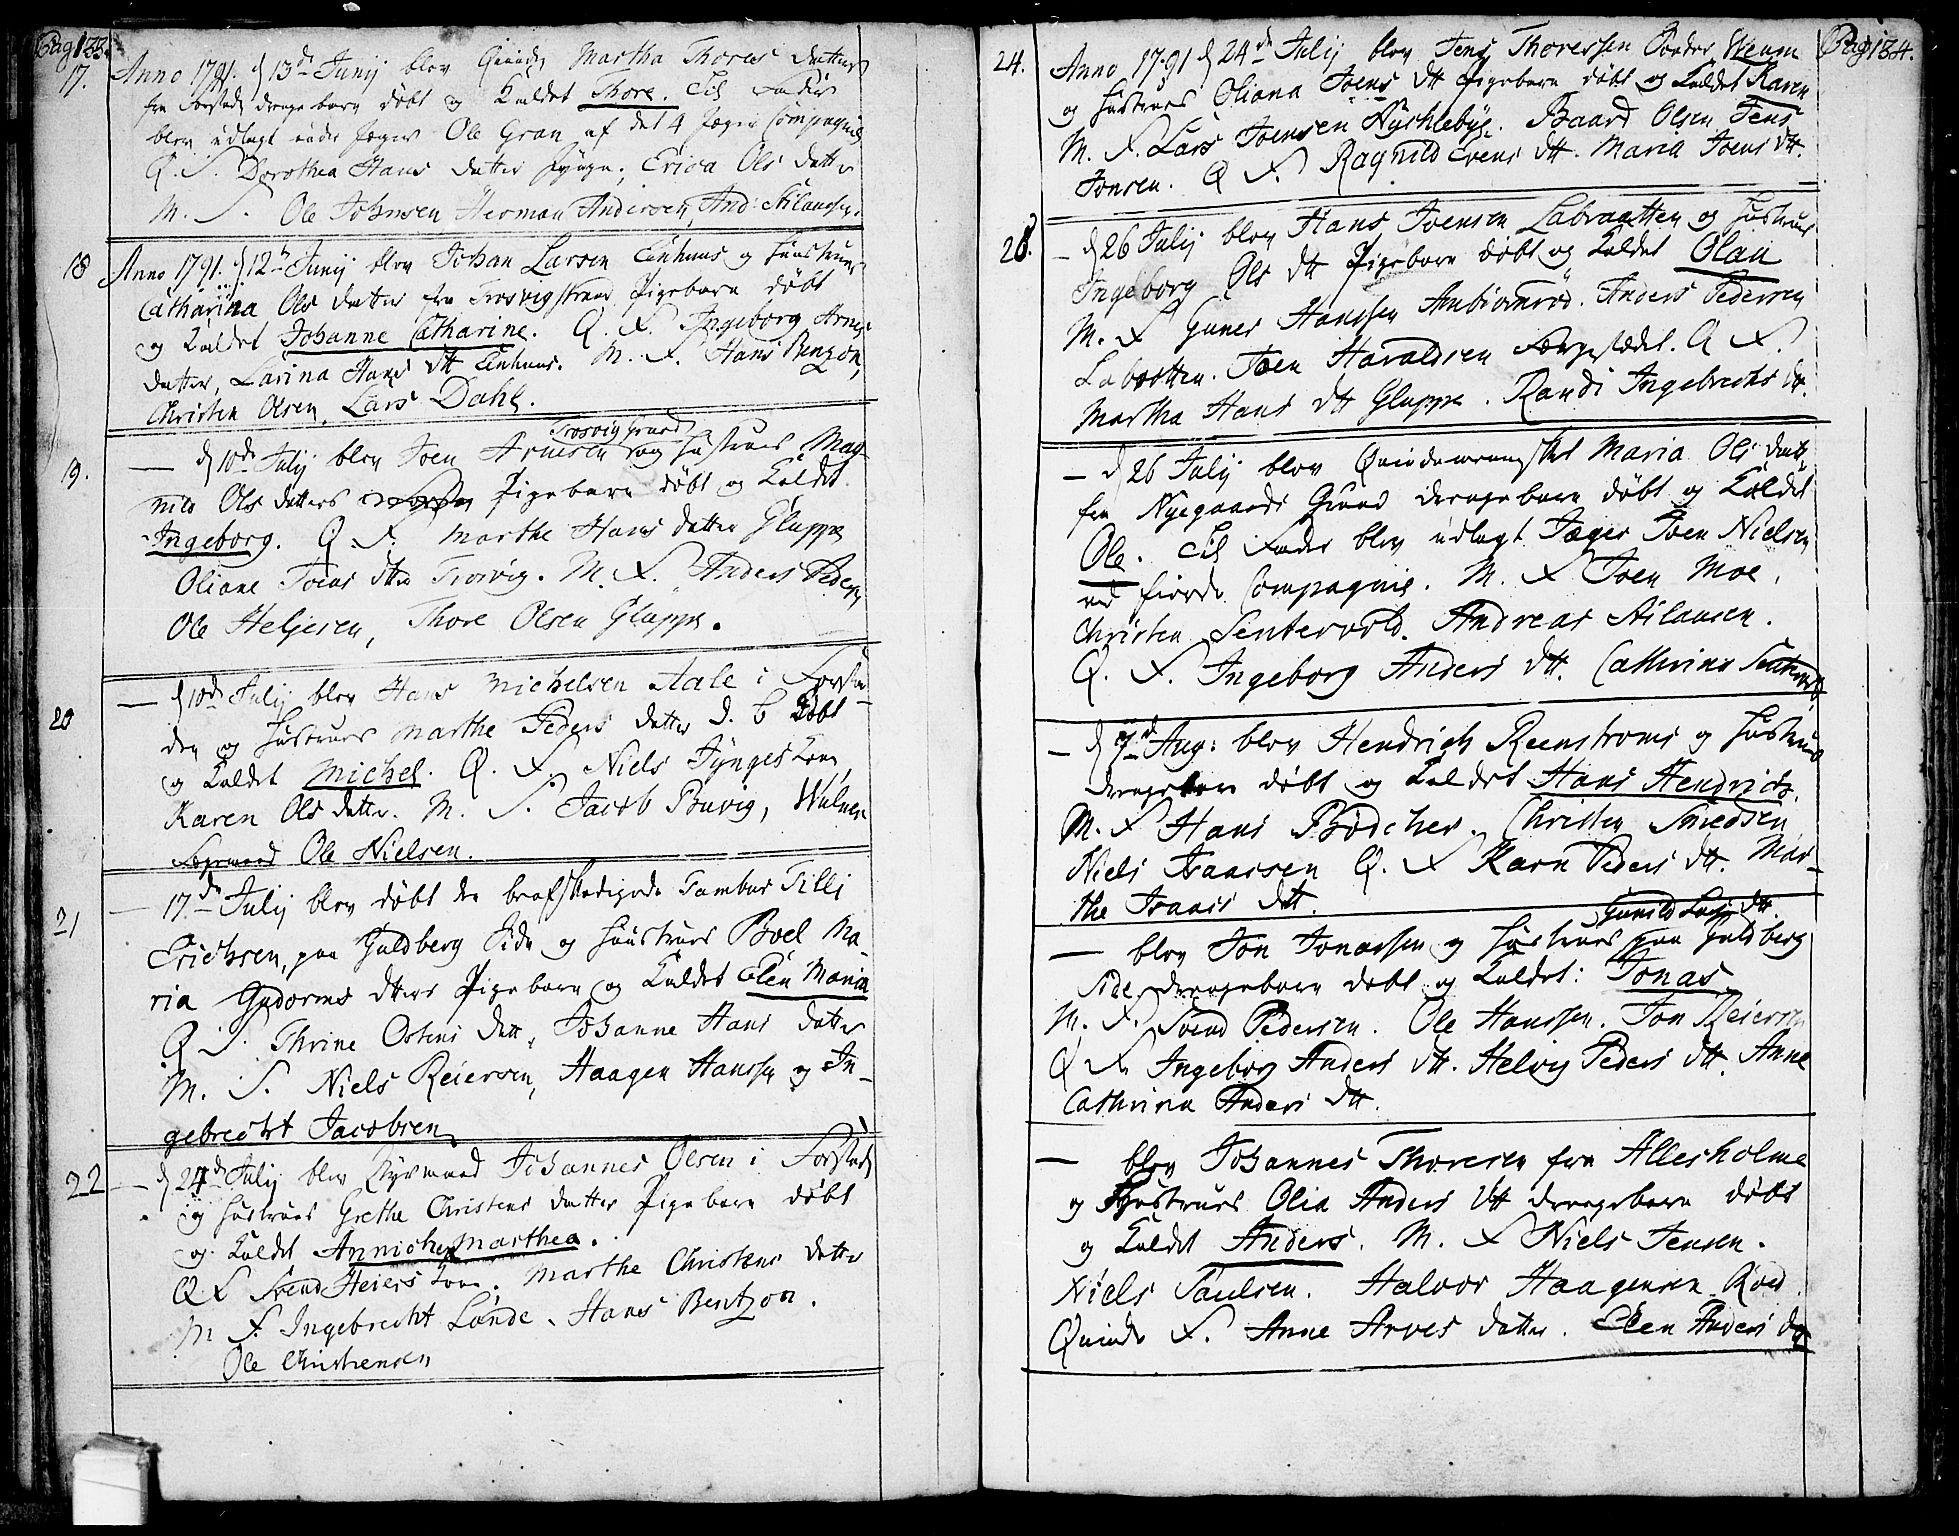 Pag 183.
17. Anno 1791. d 13de Junij blev Qvinde Martha Thores datters
fra Forstads drengebarn døbt og kaldet Thore. Til Fader
blev udlagt Jæger Ole Gran af det 4 Jæger Compagnie
Q. F. Dorothea Hans datter, Erica Ols datter
M. F. Ole Johnsen Herman Andersen, And: Aslaussen.
18 Anno 1791. d 12te Junij blev Johan Larsen Einhuus og Huustrues
Catharina Ols datter fra Trosvigstrand Pigebarn døbt
og kaldet Johanne Catharine. Q. F. Ingeborg Arnes
datter, Larina Hans dtt Einhuus. M. F. Hans Benzon,
Christen Olsen, Lars Dahl.
19. — d 10de Julij blev Joen Arnesen Trosvig Grund og Hustrues Mag
nild Ols datters Pigebarn døbt og kaldet
Ingeborg. Q. F. Marthe Hans datter Gluppe
Oliane Joens dtt Trosvig. M. F. Anders Peders
Ole Heljesen, Thore Olsen Gluppe.
20 — d 10de Julij blev Hans Michelsen Aale i Forsta
den og Hustrues Marthe Peders datter D. B døbt
og kaldet Michel. Q. F. Niels Tynges kone
Karen Ols datter. M. F. Jacob Buvig,
Ole Nielsen.
21 — 17de Julij blev døbt de beafskedigede Tambur Tilli
Erichsen, paa Guldberg Side og Huustrues Boel Ma
ria Gudorms dtters Pigebarn og kaldet Elen Maria
Q F. Thrine Ostens dett, Johanne Hans datter
M. F. Niels Reiersen, Haagen Hanssen og In-
gebrecht Jacobsen.
22 — d 24de Julij blev Johannes Olsen i Forstads
og Hustrues Grethe Christens datter Pigebarn døbt
og kaldet Anniche Marthea.
Q. F Svend Heiers kone, Marthe Christens datter
M F. Ingebrecht Lunde, Hans Bentzon.
Ole Christensen
Pag 184.
24. Anno 1791 d 24de Julij blev Jens Thoresen
og Hustrues Oliana Joens dtt Pigebarn døbt og kaldet Karen
M. F. Lars Joensen Nyshlebye. Baard Olsen Jens
Jonsen. Q F. Ragnild Evens dtt. Maria Joens dtt.
26. — d 26 Julij blev Hans Joensen Labraatten og Hustrues
Ingeborg Ols dtt Pigebarn døbt og kaldet Olau
M. F Guner Hanssen Ambiørnrød. Anders Pedersen
Labratten. Joen Haraldsen Færgestædet. Q F.
Martha Hans dtt Gluppe. Randi Ingebrechts dtt.
— d 26 Julij blev Qvindemennesket Maria Ols datt
fra Nyegaards Grund drengebarn døbt og kaldet
Ole. Til Fader blev udlagt Jæger Joen Nielsen
ved fierde Compagnie. M. F Joen Moe,
Christen Sentervold. Andreas Aslausen.
Q. F. Ingeborg Anders dtt. Cathrina
— d 7de Aug: blev Hendrich Reenstroms og Hustrues
drengebarn døbt og kaldet Hans Hendrich.
M. F Hans Bødcher. Christen Smedsen
Niels Iraarsen Q. F Karn Peders dtt. Mar-
the Isaacs dtt.
— blev Jon Jonassen og Hustrues Gunild Lars dtt. paa Guldberg
Side drengebarn døbt og kaldet: Jonas.
M. F. Svend Pedersen. Ole Hanssen. Jon Reiersen
Q F Ingeborg Anders dtt. Helvig Peders dtt. Anne
Cathrina Anders dtt.
— blev Johannes Thoresen fra Allesholme
og Hustrues Olia Anders dtt drengebarn døbt
og kaldet Anders. M. F Niels Jensen.
Niels Paulsen. Halvor Haagensen Roed.
Qvinde F. Anne Arves datter. Elen Anders dtt